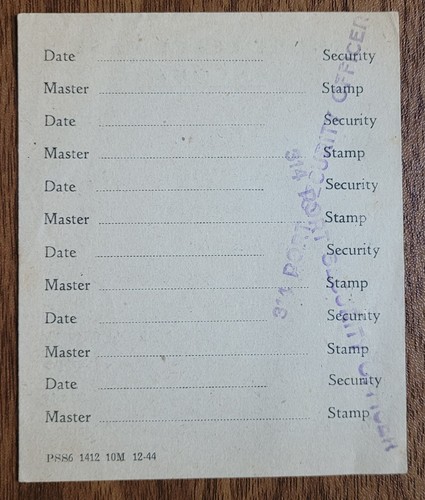 Date Security
Master Stamp
Date Security
Master Stamp
Date Security
Master Stamp
Date Security
Master Stamp
Date Security
Master Stamp
Date Security
Master Stamp
314 PORT SECURITY OFFICER
314 PORT SECURITY OFFICER
PSS6 1412 10M 12-44